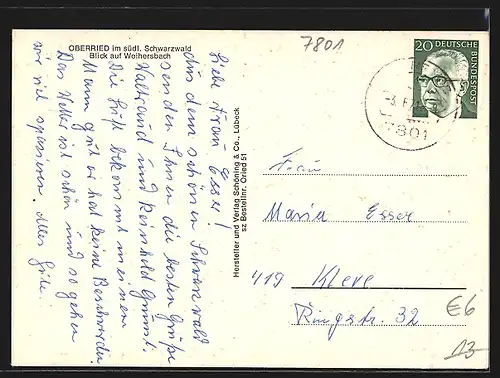 OBERRIED im südl. Schwarzwald
Blick auf Weihersbach
7801
20 DEUTSCHE
BUNDESPOST
801
Liebe Frau Esser!
Aus dem schönen Schwarzwald
senden Ihnen die besten Grüße
Waltraud und Reinhold
Die Luft bekommt meinem
Mann gut er hat keine Beschwerden.
Das Wetter ist schön und so gehen
wir viel spazieren. Alles
Gute.
Hersteller und Verlag Schöning & Co., Lübeck
sz Bestellnr. Oried 51
Frau
Maria Esser
419 Kleve
Ringstr. 32
€6
13